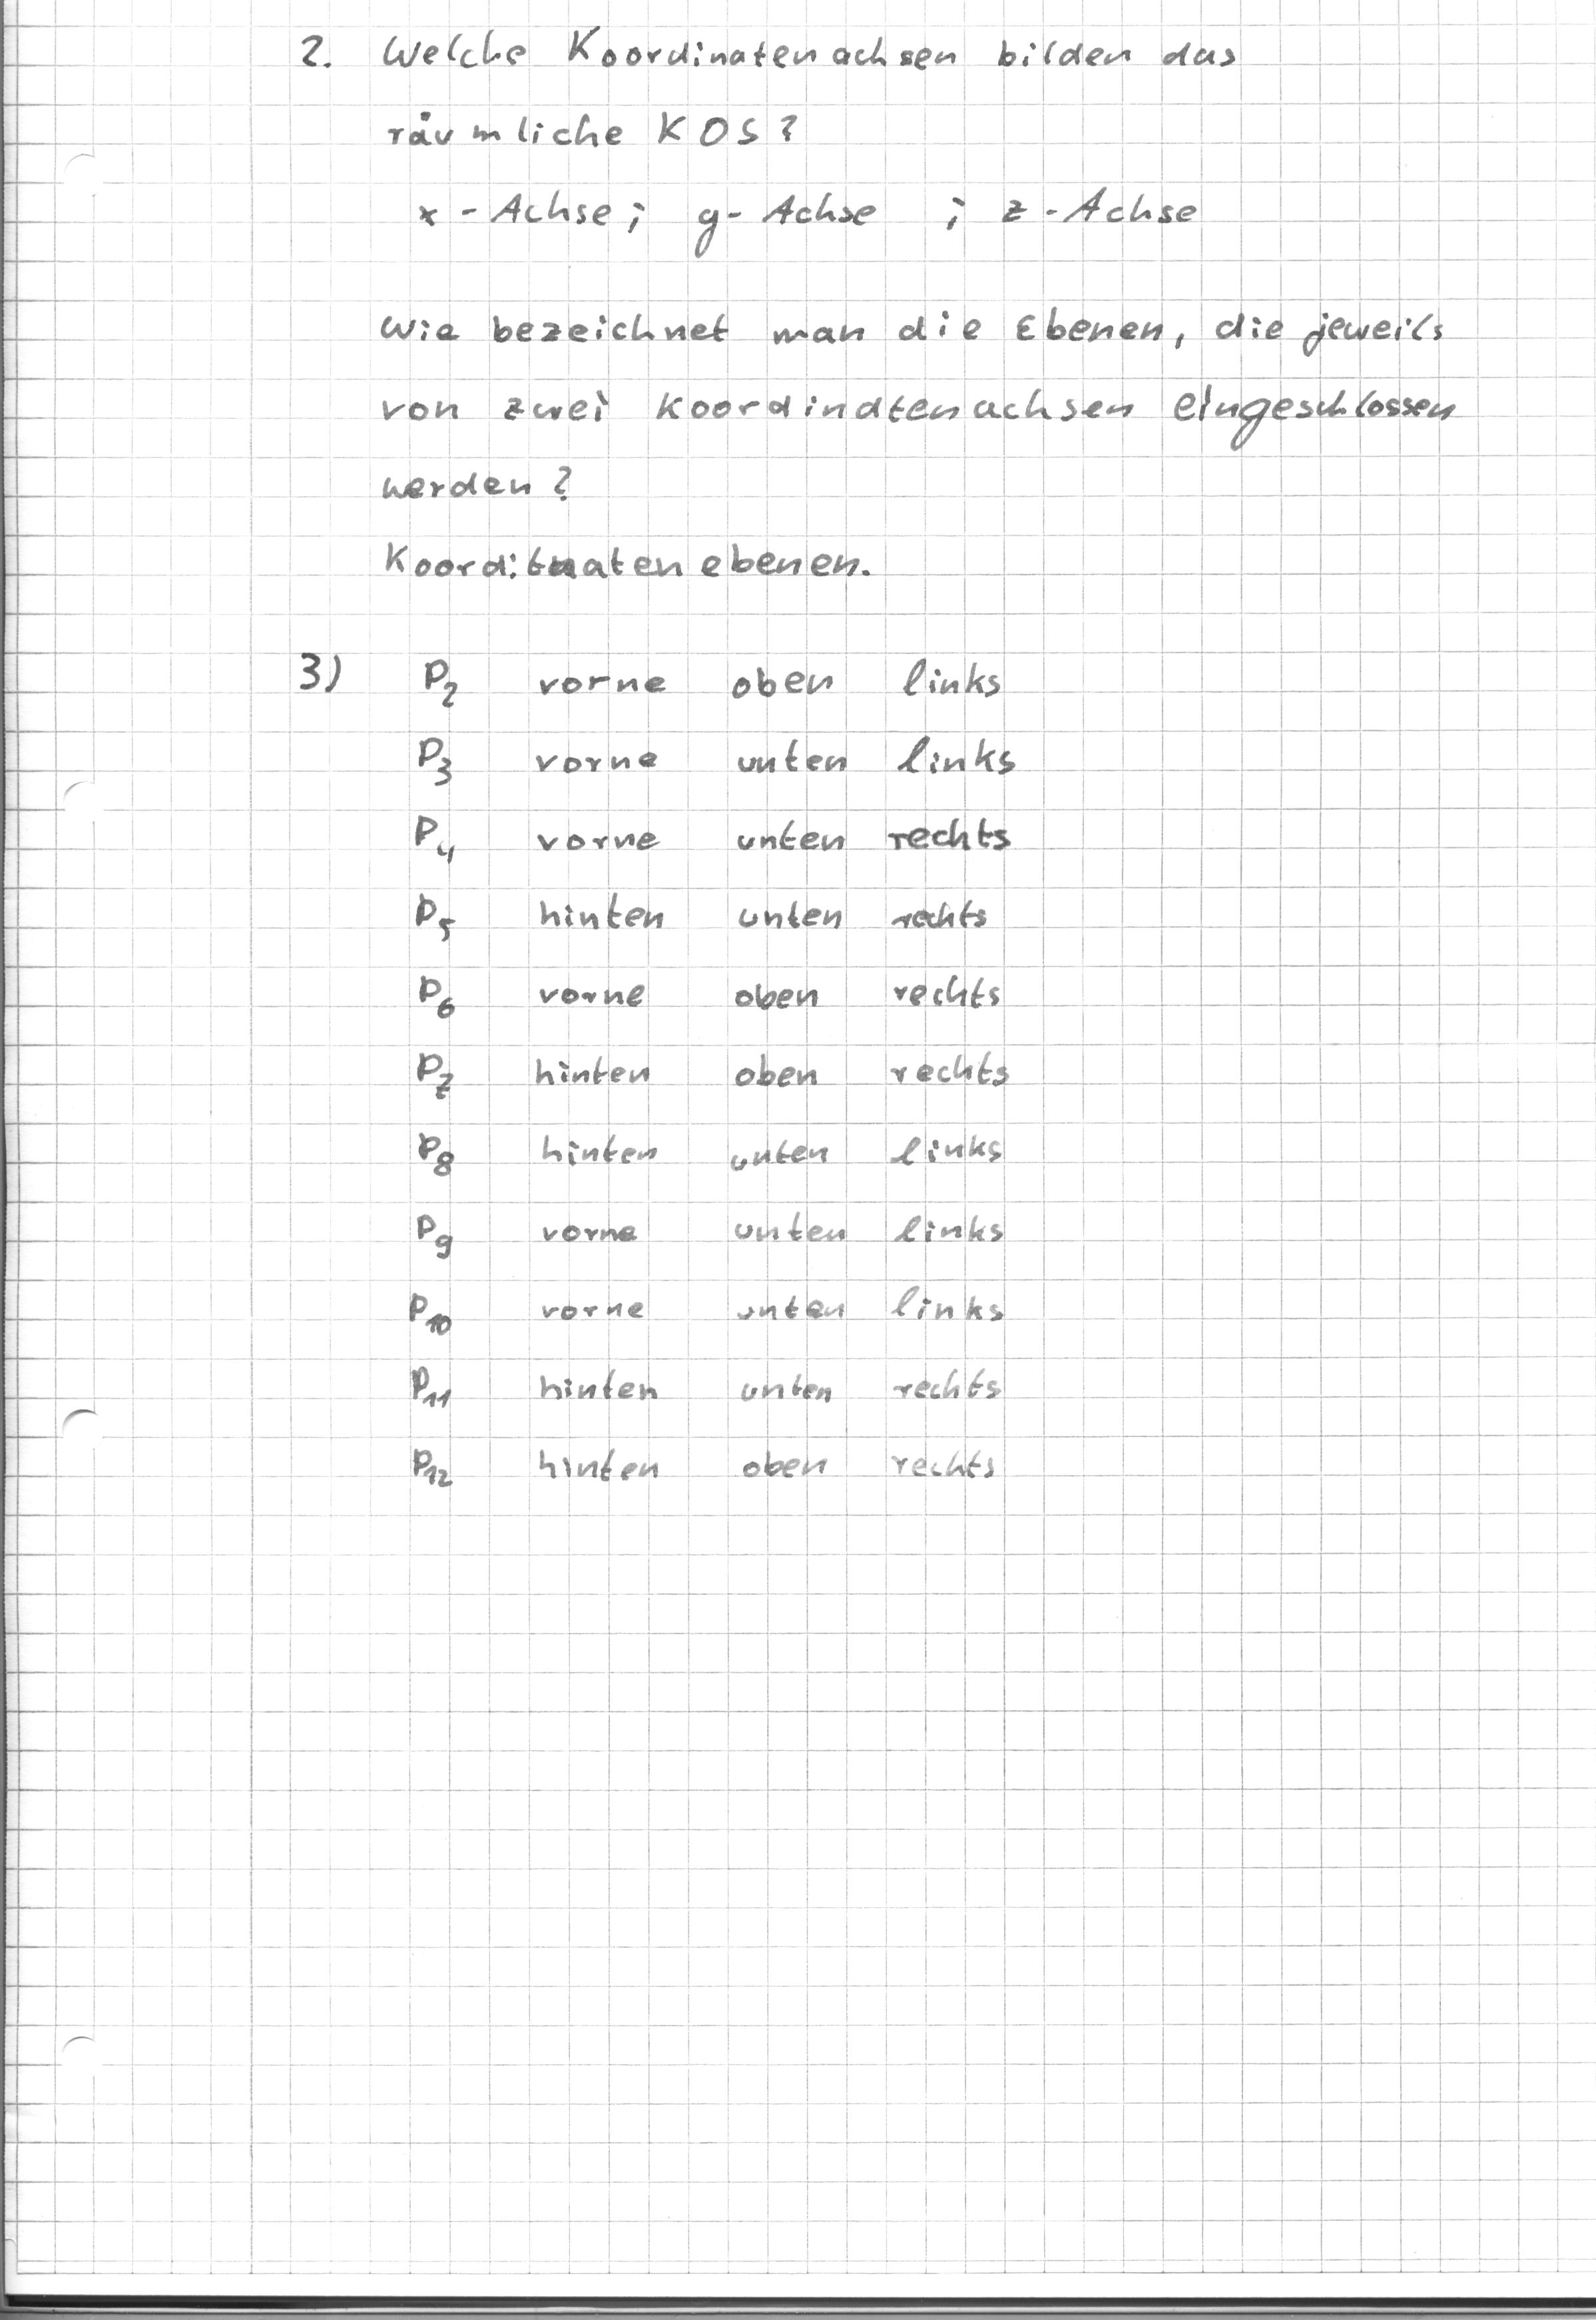 2. Welche Koordinatenachsen bilden das
räumliche KOS?
x-Achse; y-Achse ; z-Achse
Wie bezeichnet man die Ebenen, die jeweils
von zwei Koordinatenachsen eingeschlossen
werden?
Koordinatenebenen.
3) P2 vorne oben links
P3 vorne unten links
P4 vorne unten rechts
P5 hinten unten rechts
P6 vorne oben rechts
P7 hinten oben rechts
P8 hinten unten links
P9 vorne unten links
P10 vorne unten links
P11 hinten unten rechts
P12 hinten oben rechts